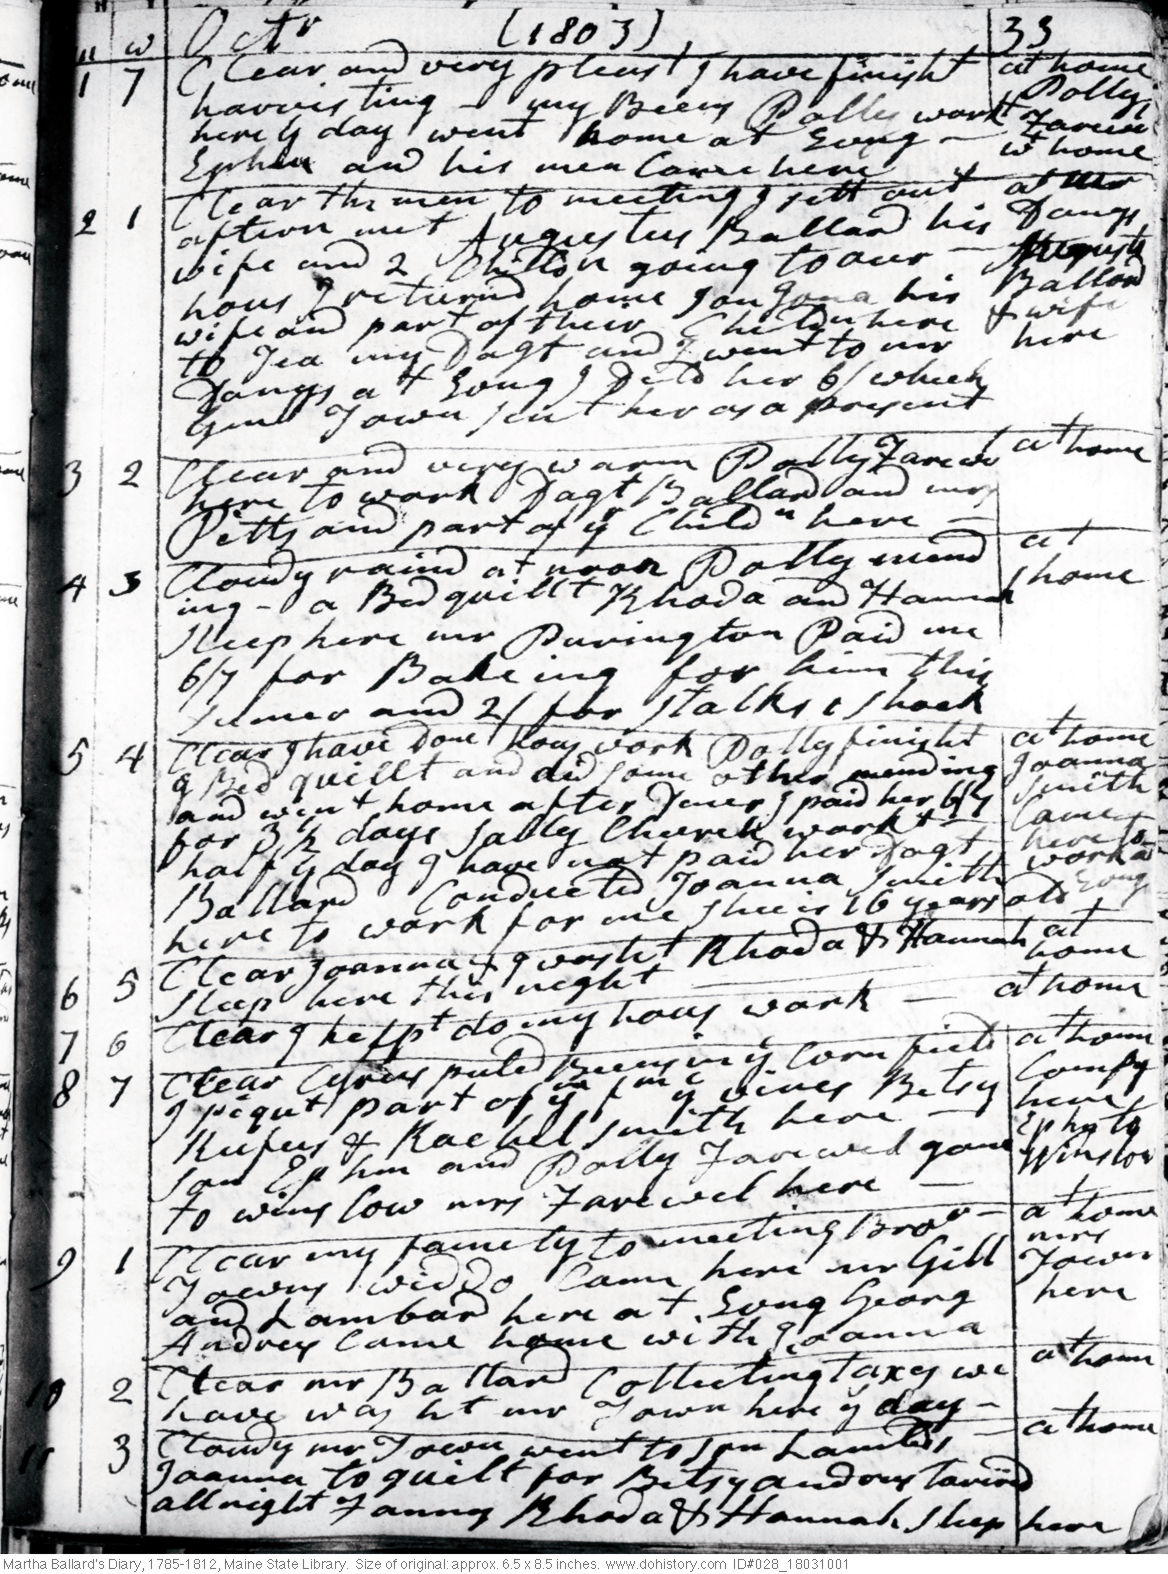 Octr (1803), 33
1 7 Clear and very pleast I have finisht at home
harvisting my Beens Polly workt Polly
here ys day went home at Evng – Farewel
Ephm and his men Came here wt home
2 1 Clear the men to meeting I sett out at mr
aftern met Augustus Ballard his Dangs
wife and 2 Childn going to our – August
hous I returnd home son Jona his Ballard
wife and part of their Childn here & wife
to Tea my Dagt and I went to mr here
Dangs at Evng I Deld her 6/ which
Genl Town sent her as a present
3 2 Clear and very warm Polly Farewel at home
here to work Dagt Ballard and mrs
Pitts and part of yr Childn here –
4 3 Cloudy raind at noon Polly mend at
ing – a Bed quillt Rhoda and Hannah home
sleep here mr Purington Paid me
6/7 for Bakeing for him this
sumer and 2/ for stalks & shock
5 4 Clear I have Done hous work Polly finisht at home
ye Bed quillt and did some other mending Joanna
and went home after Diner I paid her 6/9 Smith
for 3 1/2 days Sally Church workt Came
half ye day I have not paid her Dagt here to
Ballard Conducted Joanna Smith work at
here to work for me shee is 16 years old Evng
6 5 Clear Joanna & I washt Rhoda & Hannah at
sleep here this night home
7 6 Clear I helpt do my hous work – at home
8 7 Clear Cyrus puled Beens in ye Corn field at home
I piqut part of ym fm ye vines Betsy Compy
Rufus & Rachel Smith here – here
son Ephm and Polly Farewel gone Ephm to
to winslow mrs Farewel here – Winslow
9 1 Clear my family to meeting Bror – at home
Towns widdo Came here mr Gill mrs
and Lambard here at Evng Georg Town
Andrews Came home with Joanna here
10 2 Clear mr Ballard Collecting taxes we at home
have washt mr Town here ys day –
11 3 Cloudy mr Town went to son Lambds at home
Joanna to quilt for Betsy Andrews tarried
all night Fanny Rhoda & Hannah sleep here
Martha Ballard's Diary, 1785-1812, Maine State Library. Size of original: approx. 6.5 x 8.5 inches. www.dohistory.com ID#028_18031001